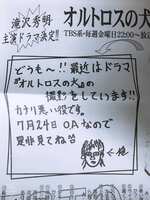 滝沢秀明
主演ドラマ決定!!
オルトロスの犬
TBS系・毎週金曜22:00〜
どうも〜!!最近はドラマ
『オルトロスの犬』の
撮影をしています!!
カナリ悪い役です。
7月24日OAなので
是非見てね
←俺